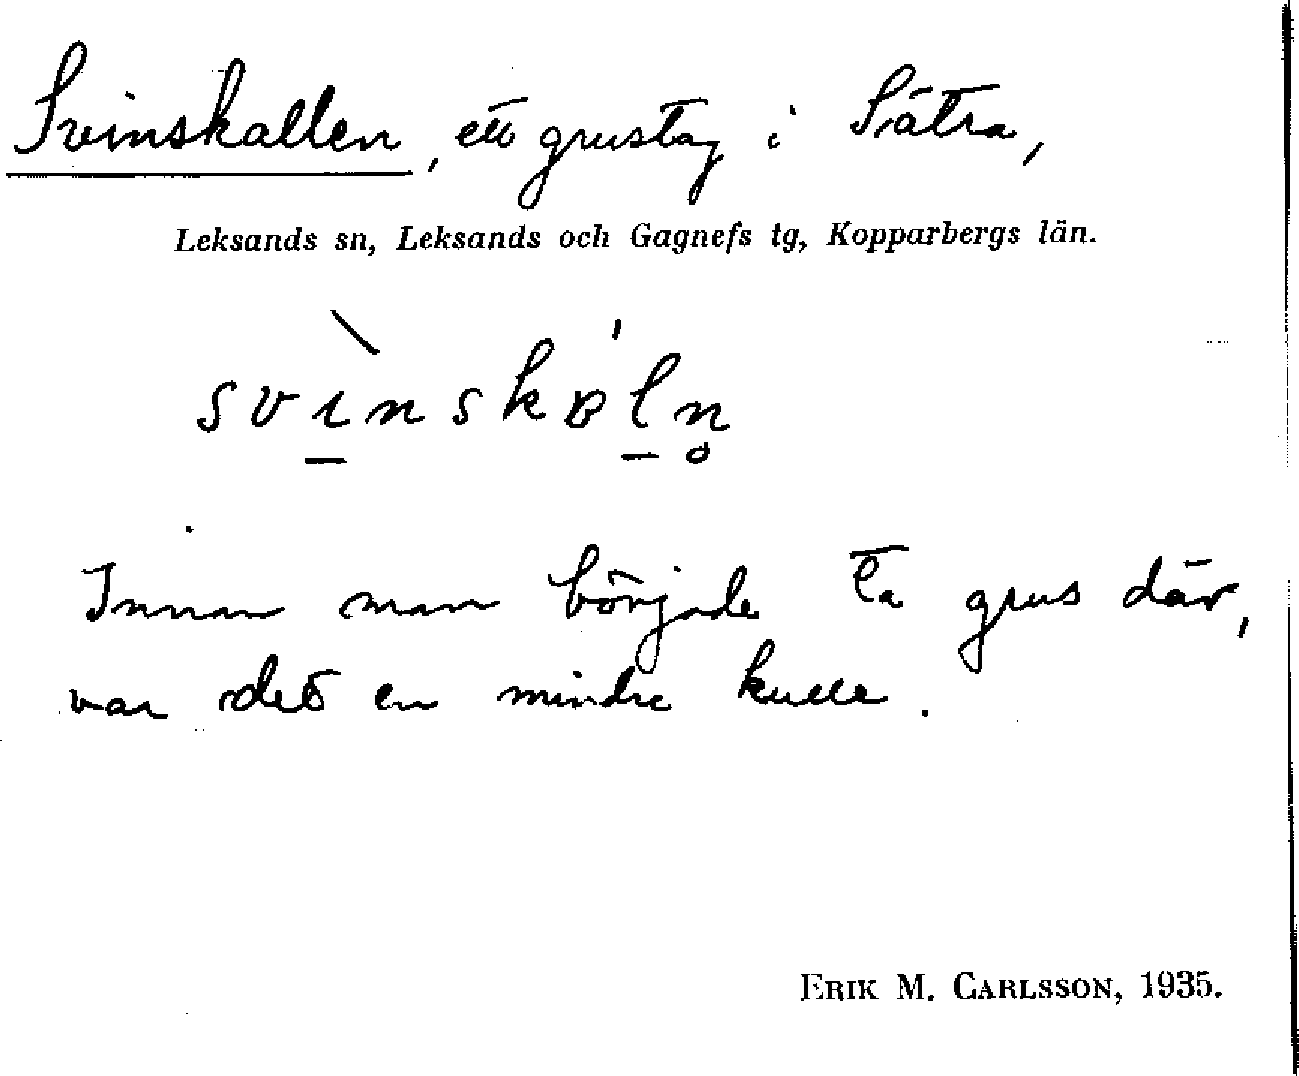 Svinskallen, ett grustag i Sätra,
Leksands sn, Leksands och Gagnefs tg, Kopparbergs län.
svı̲̀nskɒl̲̍n̥
Innan man började ta grus där,
var det en mindre kulle.
ERIK M. CARLSSON, 1935.